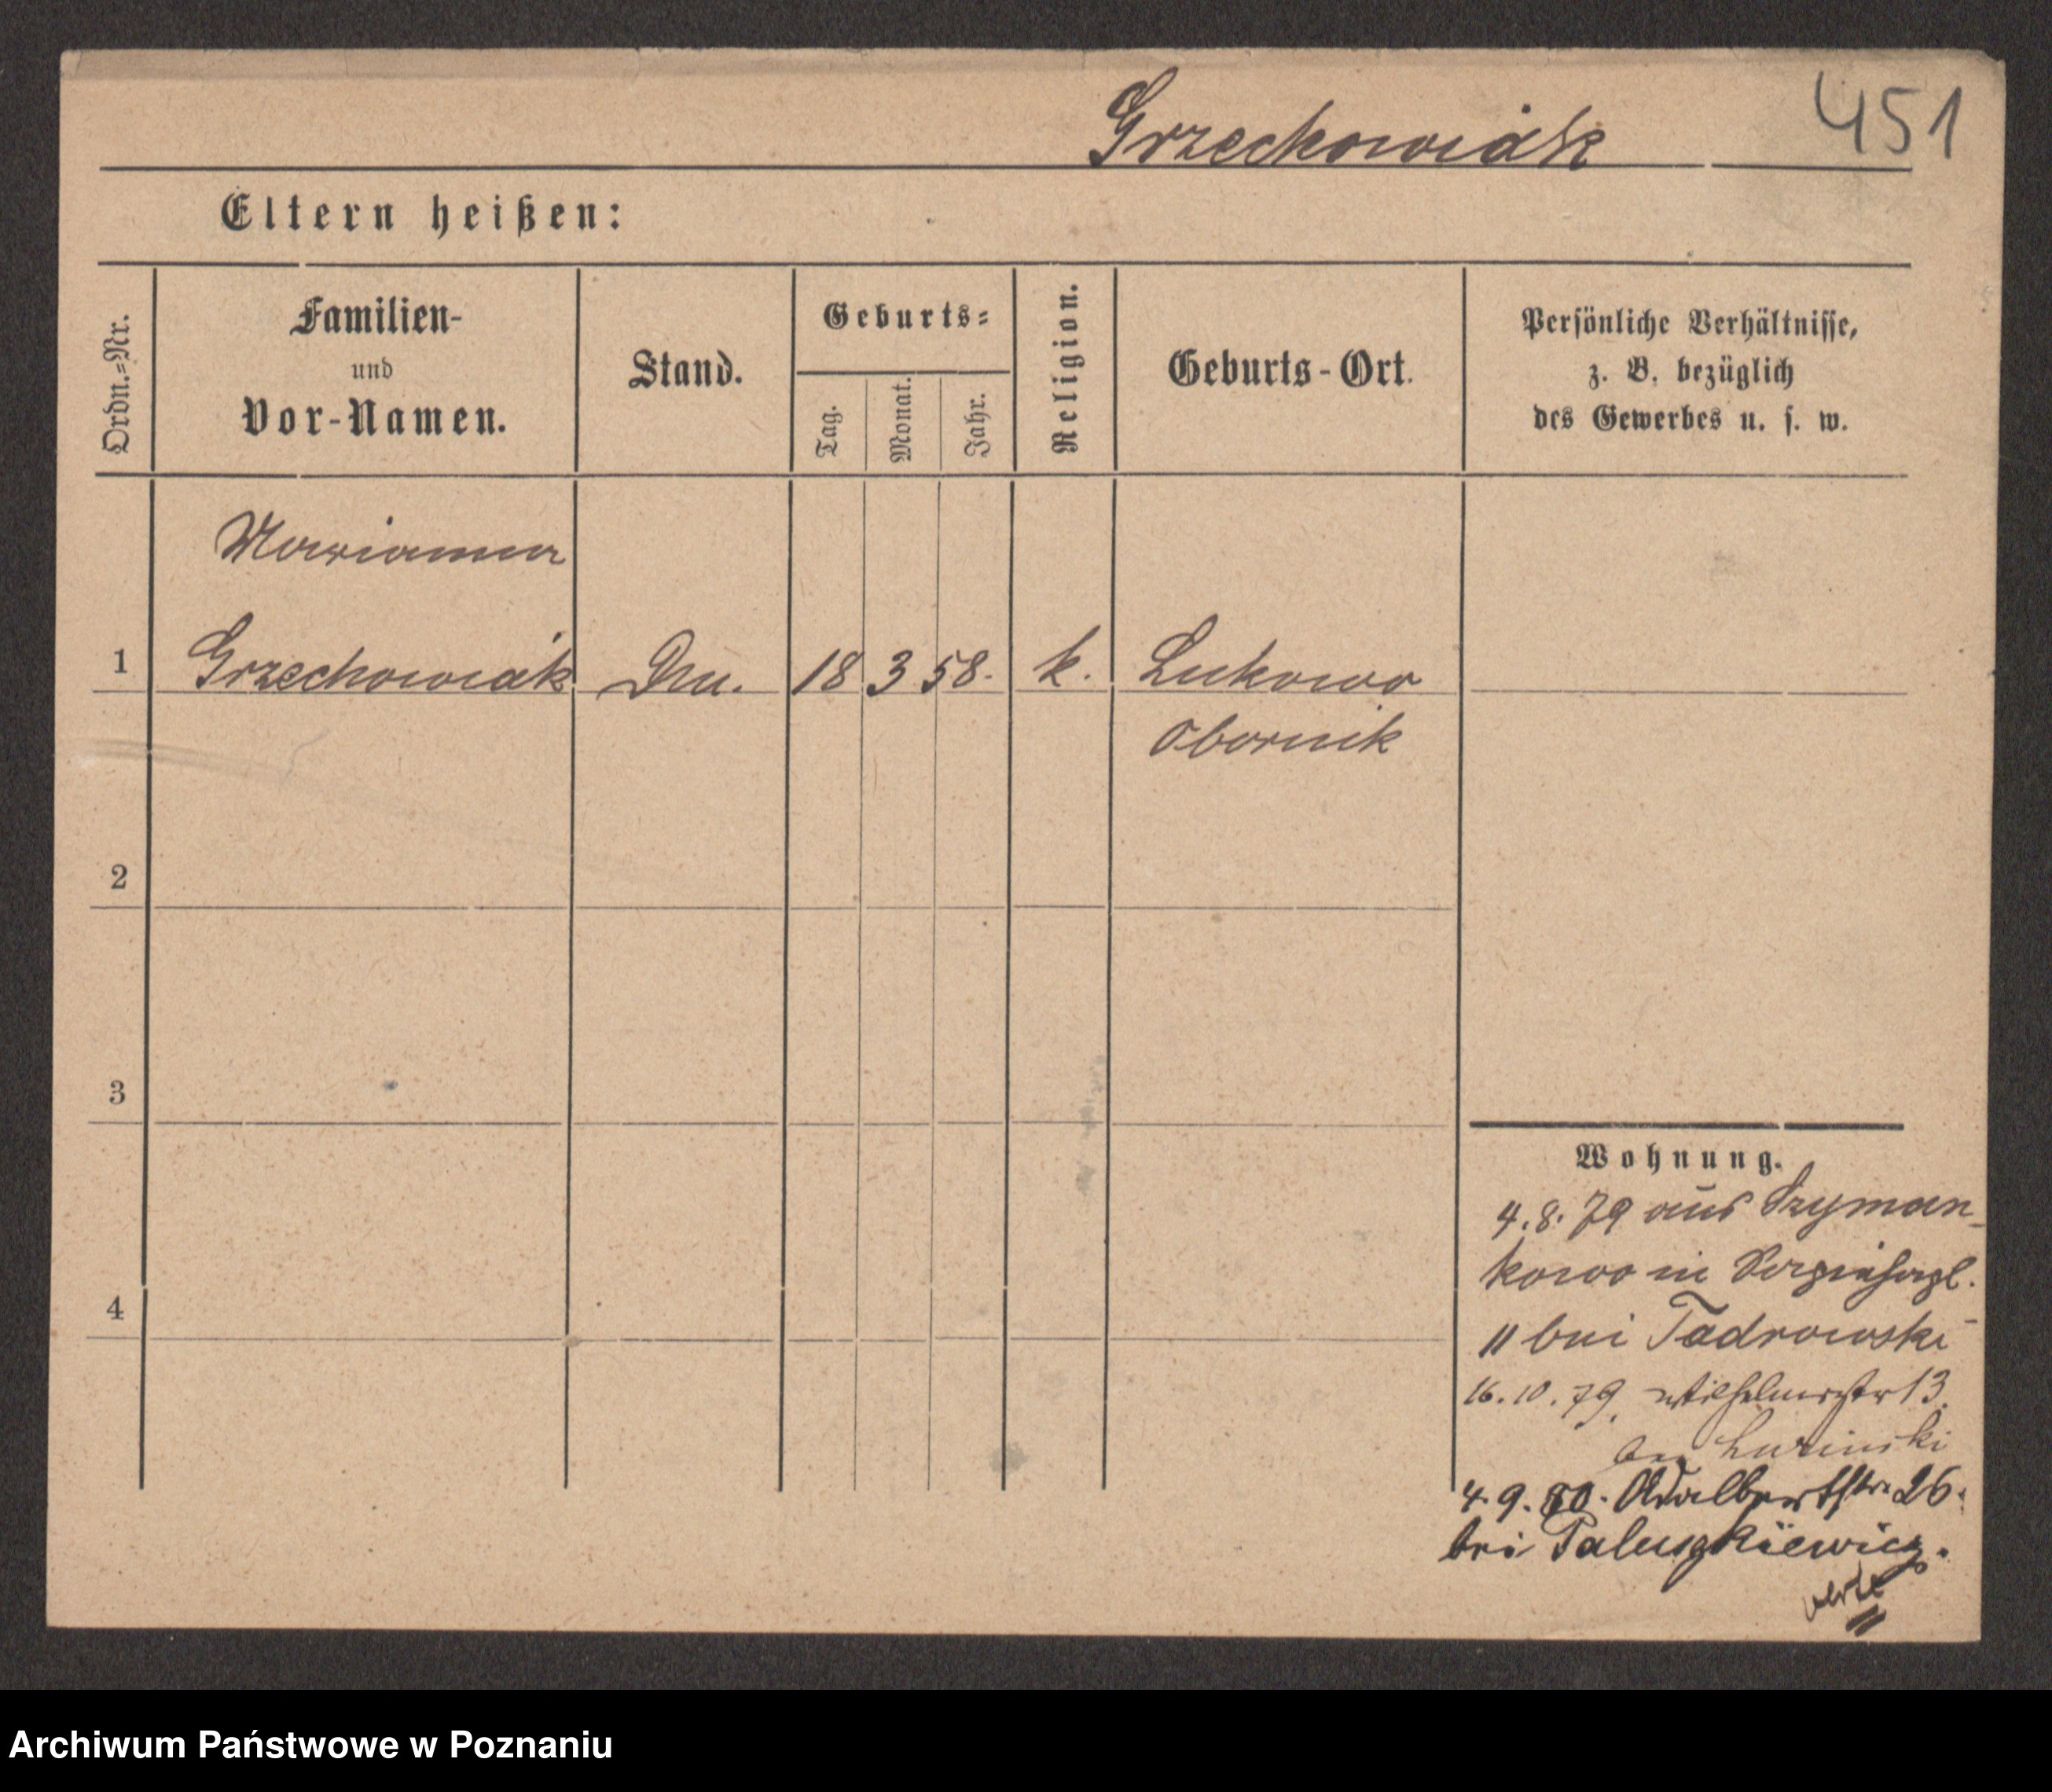 Grzechowiak
451
Eltern heißen:
Ordn.=Nr.
Familien-
und
Vor-Namen.
Stand.
Geburts=
Tag.
Monat.
Jahr.
Religion.
Geburts-Ort.
Persönliche Verhältnisse,
z. B. bezüglich
des Gewerbes u. s. w.
Marianna
1 Grzechowiak 18 3 58. k. Lukowo
Obornik
2
3
4
Wohnung.
4.8.79 aus Szyman-
kowo in
11 bei Tadrowski
16.10.79. Wilhelmstr 13.
4.9.80. Adalbertstr. 26.
bei Paluszkiewicz.
verte
Archiwum Państwowe w Poznaniu